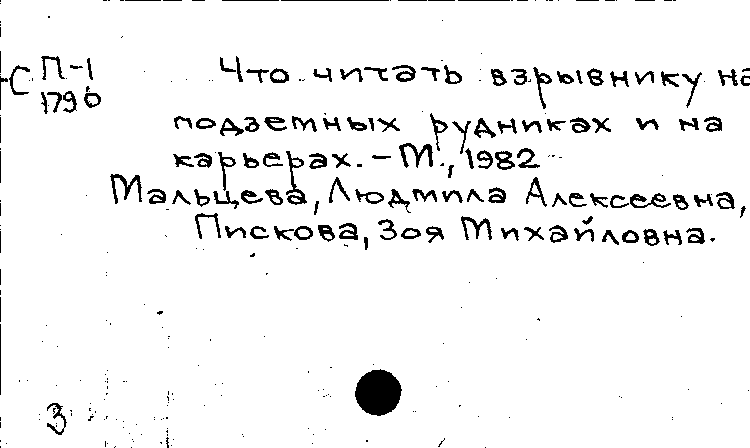 С П-1 Что читать взрывнику на
1796
подземных рудниках и на
карьерах. - М., 1982
Мальцева, Людмила Алексеевна,
Пискова, Зоя Михайловна.
3